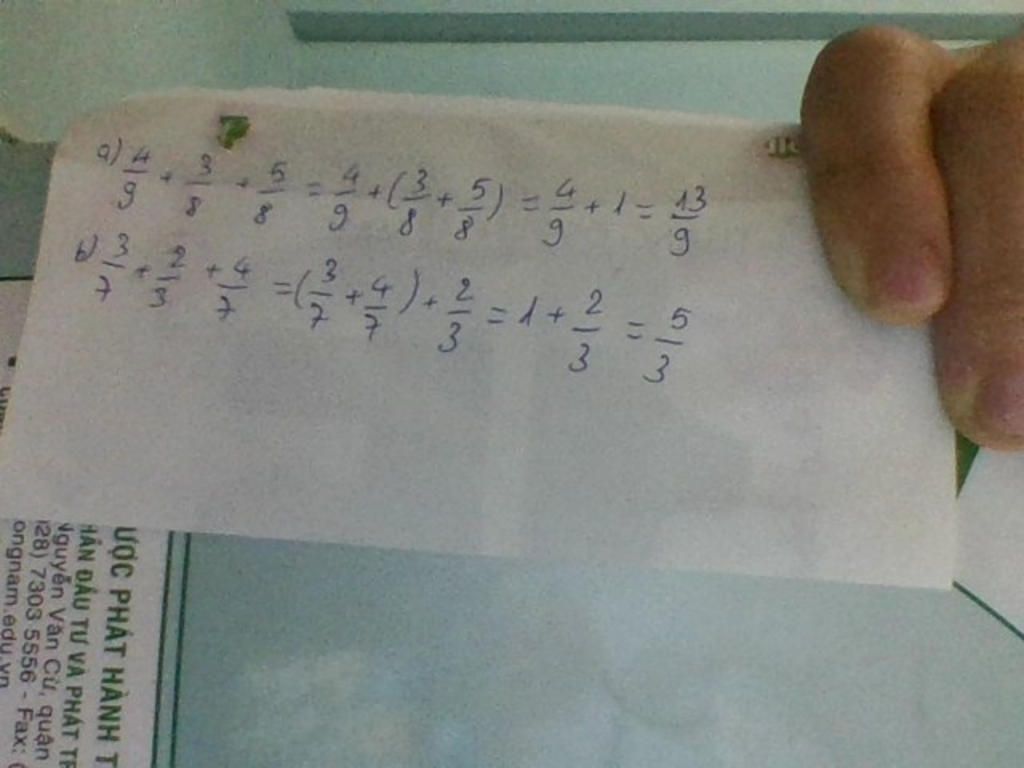 a) 4/9 + 3/8 + 5/8 = 4/9 + (3/8 + 5/8) = 4/9 + 1 = 13/9
b) 3/7 + 2/3 + 4/7 = (3/7 + 4/7) + 2/3 = 1 + 2/3 = 5/3
ƯỢC PHÁT HÀNH T
HẦN ĐẦU TƯ VÀ PHÁT TR
Nguyễn Văn Cừ, quận
028) 7303 5556 - Fax: (
ongnam.edu.vn